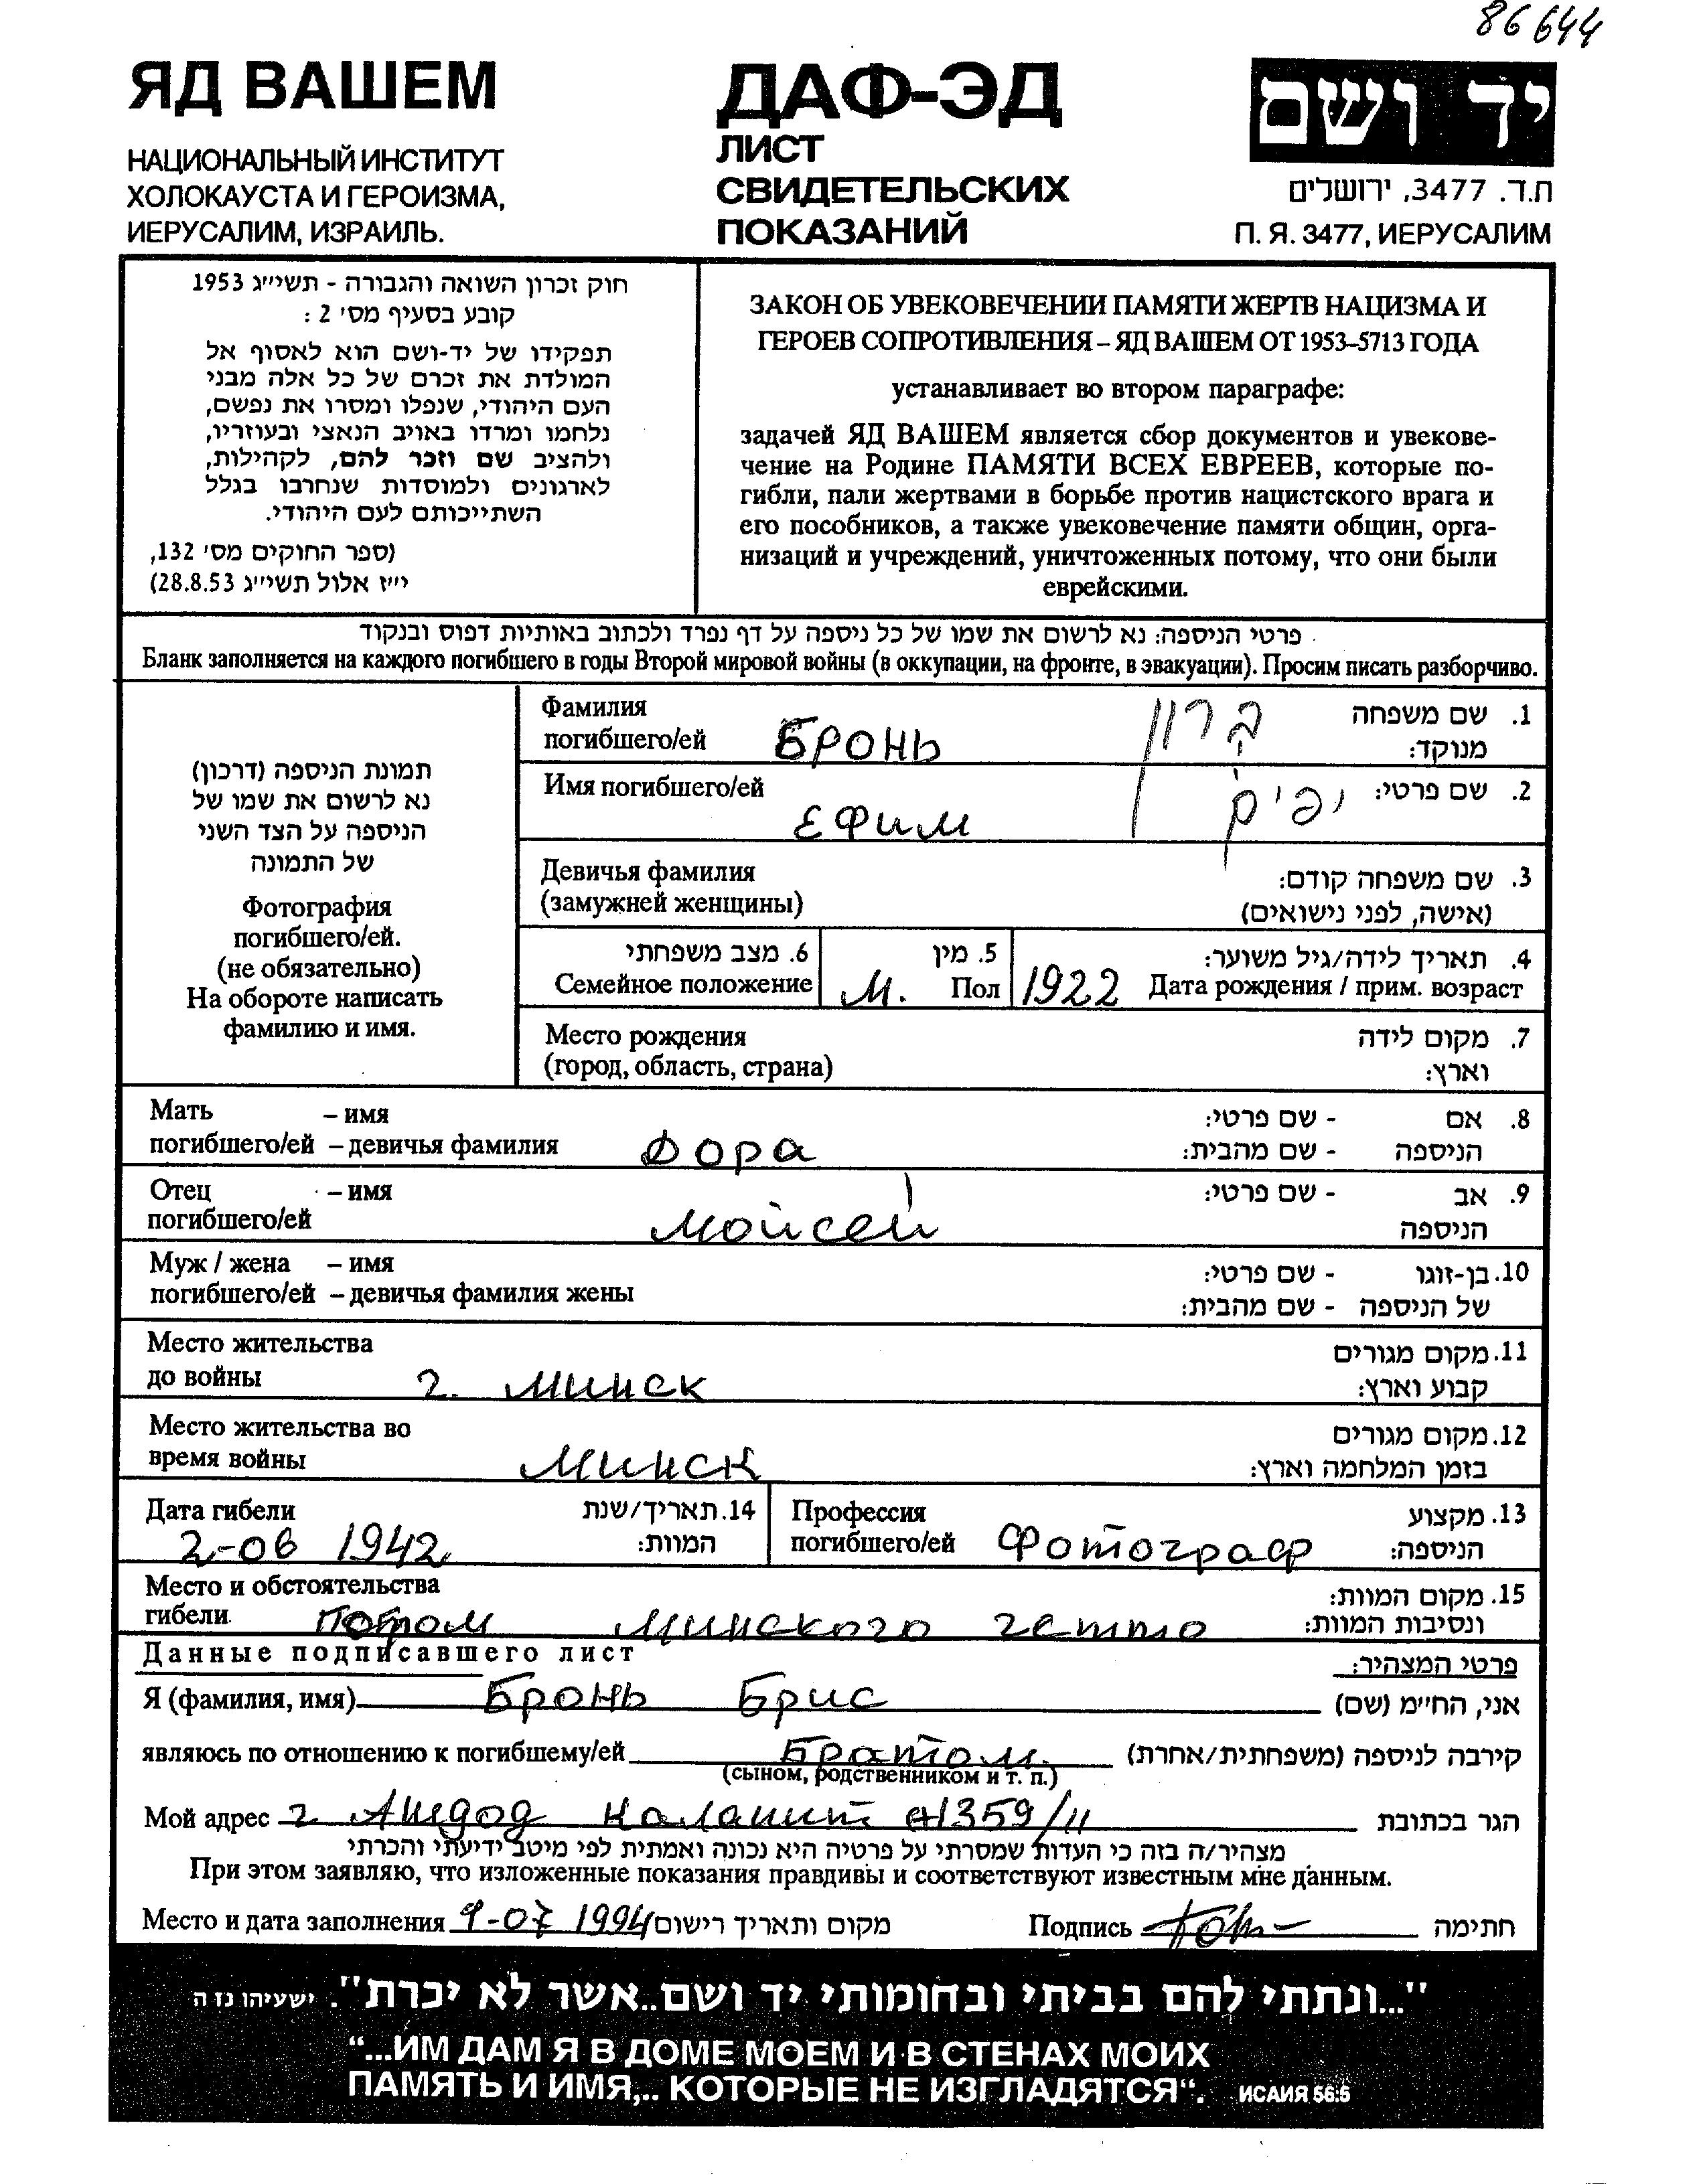 86644
ЯД ВАШЕМ
НАЦИОНАЛЬНЫЙ ИНСТИТУТ
ХОЛОКАУСТА И ГЕРОИЗМА,
ИЕРУСАЛИМ, ИЗРАИЛЬ.
ДАФ-ЭД
ЛИСТ
СВИДЕТЕЛЬСКИХ
ПОКАЗАНИЙ
יד ושם
ת.ד. 3477, ירושלים
П. Я. 3477, ИЕРУСАЛИМ
חוק זכרון השואה והגבורה - תשי״ג 1953
קובע בסעיף מס׳ 2 :
תפקידו של יד-ושם הוא לאסוף אל
המולדת את זכרם של כל אלה מבני
העם היהודי, שנפלו ומסרו את נפשם,
נלחמו ומרדו באויב הנאצי ובעוזריו,
ולהציב שם וזכר להם, לקהילות,
לארגונים ולמוסדות שנחרבו בגלל
השתייכותם לעם היהודי.
(ספר החוקים מס׳ 132,
י״ז אלול תשי״ג 28.8.53)
ЗАКОН ОБ УВЕКОВЕЧЕНИИ ПАМЯТИ ЖЕРТВ НАЦИЗМА И
ГЕРОЕВ СОПРОТИВЛЕНИЯ – ЯД ВАШЕМ ОТ 1953–5713 ГОДА
устанавливает во втором параграфе:
задачей ЯД ВАШЕМ является сбор документов и увекове-
чение на Родине ПАМЯТИ ВСЕХ ЕВРЕЕВ, которые по-
гибли, пали жертвами в борьбе против нацистского врага и
его пособников, а также увековечение памяти общин, орга-
низаций и учреждений, уничтоженных потому, что они были
еврейскими.
פרטי הניספה: נא לרשום את שמו של כל ניספה על דף נפרד ולכתוב באותיות דפוס ובנקוד
Бланк заполняется на каждого погибшего в годы Второй мировой войны (в оккупации, на фронте, в эвакуации). Просим писать разборчиво.
תמונת הניספה (דרכון)
נא לרשום את שמו של
הניספה על הצד השני
של התמונה
Фотография
погибшего/ей.
(не обязательно)
На обороте написать
фамилию и имя.
Фамилия 1. שם משפחה
погибшего/ей БРОНЬ ברון מנוקד:
Имя погибшего/ей Ефим יפים 2. שם פרטי:
Девичья фамилия 3. שם משפחה קודם:
(замужней женщины) (אישה, לפני נישואים)
6. מצב משפחתי 5. מין 4. תאריך לידה/גיל משוער:
Семейное положение М. Пол 1922 Дата рождения / прим. возраст
Место рождения 7. מקום לידה
(город, область, страна) וארץ:
Мать – имя 8. אם - שם פרטי:
погибшего/ей – девичья фамилия Дора הניספה - שם מהבית:
Отец – имя 9. אב - שם פרטי:
погибшего/ей Мойсей הניספה
Муж / жена – имя 10. בן-זוגו - שם פרטי:
погибшего/ей – девичья фамилия жены של הניספה - שם מהבית:
Место жительства 11. מקום מגורים
до войны г. Минск קבוע וארץ:
Место жительства во 12. מקום מגורים
время войны Минск בזמן המלחמה וארץ:
Дата гибели 14. תאריך/שנת
2-06 1942 המוות:
Профессия 13. מקצוע
погибшего/ей Фотограф הניספה:
Место и обстоятельства 15. מקום המוות:
гибели Минского гетто ונסיבות המוות:
Данные подписавшего лист פרטי המצהיר:
Я (фамилия, имя) Бронь Брис אני, הח״מ (שם)
являюсь по отношению к погибшему/ей Братом קירבה לניספה (משפחתית/אחרת)
(сыном, родственником и т. п.)
Мой адрес г Ашдод каланит 1359/11 הגר בכתובת
מצהיר/ה בזה כי העדות שמסרתי על פרטיה היא נכונה ואמתית לפי מיטב ידיעתי והכרתי
При этом заявляю, что изложенные показания правдивы и соответствуют известным мне данным.
Место и дата заполнения 9-07 1994 מקום ותאריך רישום Подпись חתימה
"...ונתתי להם בביתי ובחומותי יד ושם..אשר לא יכרת". ישעיהו נז ה
“...ИМ ДАМ Я В ДОМЕ МОЕМ И В СТЕНАХ МОИХ
ПАМЯТЬ И ИМЯ,.. КОТОРЫЕ НЕ ИЗГЛАДЯТСЯ“. ИСАИЯ 56:5